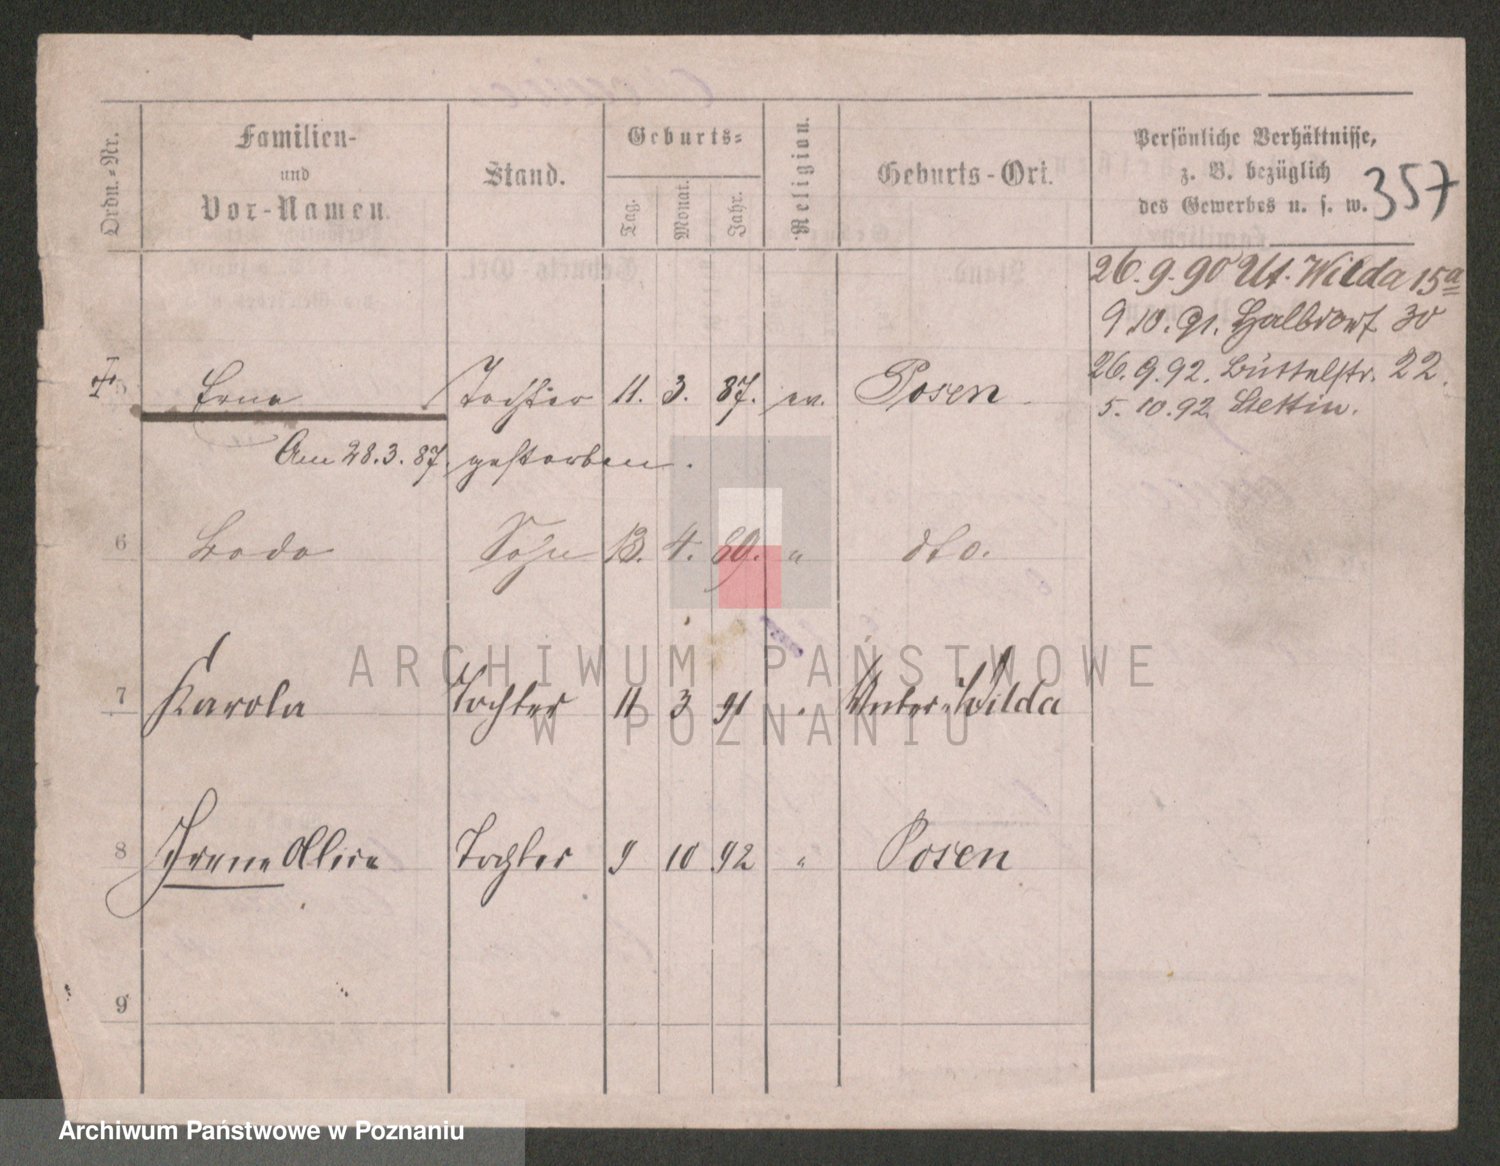 Ordn.-Nr.
Familien-
und
Vor-Namen.
Stand.
Geburts-
Tag.
Monat.
Jahr.
Religion.
Geburts-Ort.
Persönliche Verhältnisse,
z. B. bezüglich
des Gewerbes u. s. w.
357
26.9.90 Ut. Wilda 15a
9.10.91. Halbdorf 30
26.9.92. Büttelstr. 22.
5.10.92. Stettin.
5 Erna Tochter 11. 3. 87. ev. Posen
Am 28.3.87. gestorben.
6 Bodo Sohn 13. 4. 89. " dto.
7 Karola Tochter 11 3 91 " Unter-Wilda
8 Irene Alice Tochter 9 10 92 " Posen
9
ARCHIWUM PAŃSTWOWE
W POZNANIU
Archiwum Państwowe w Poznaniu